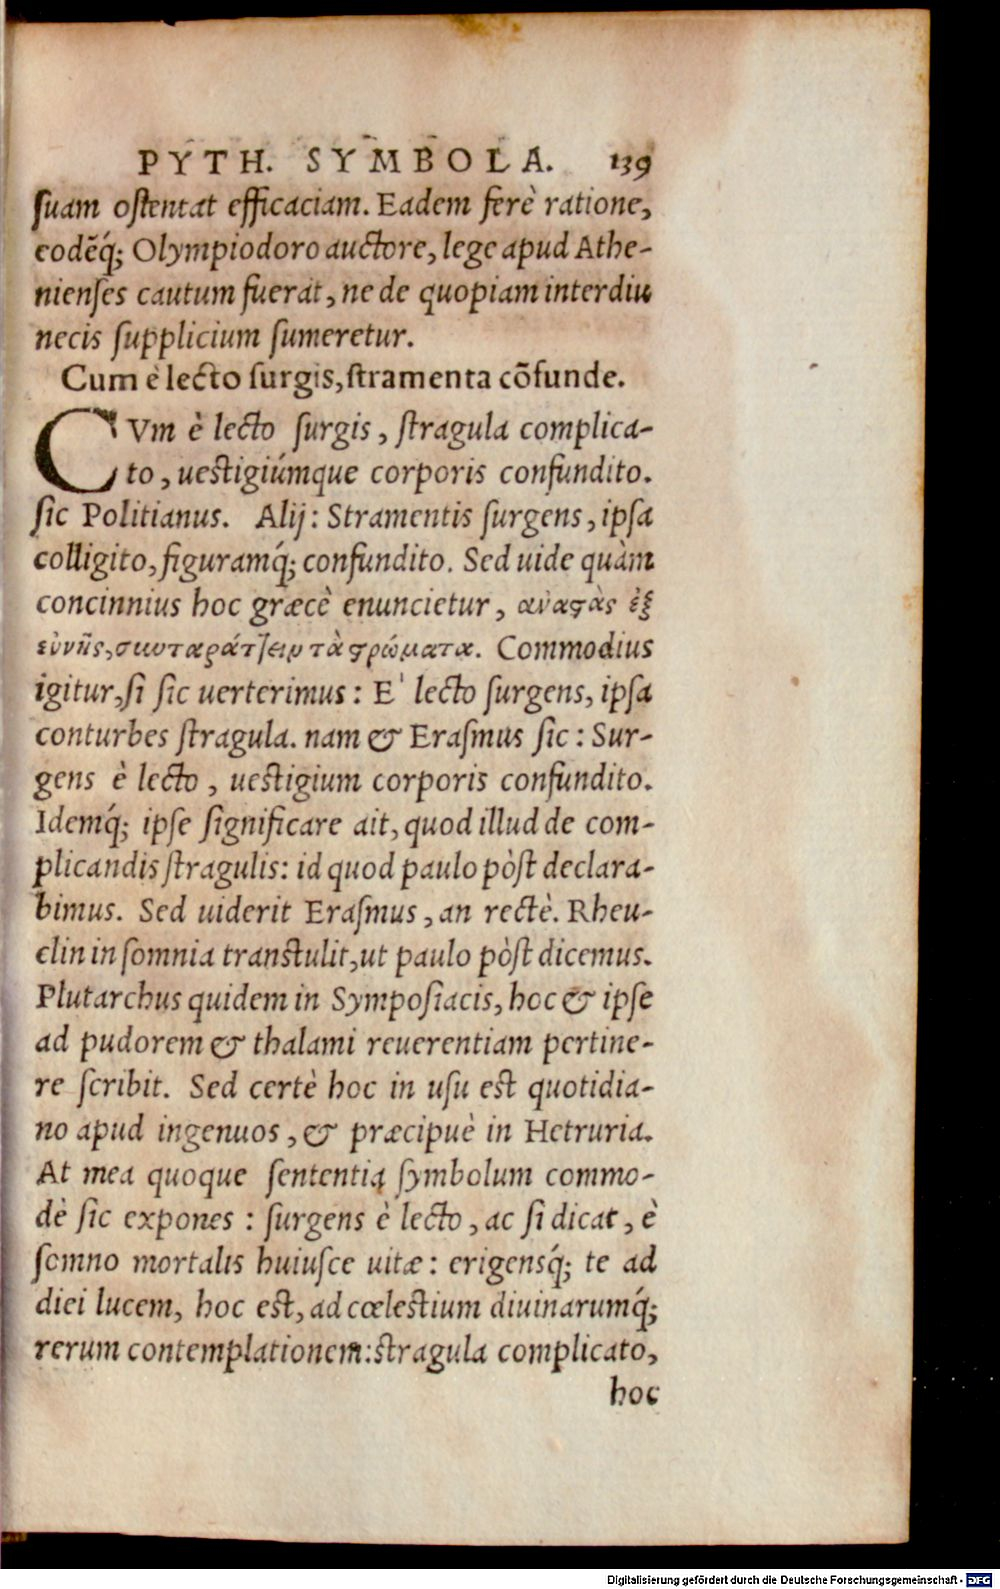 PYTH. SYMBOLA. 139
suam ostentat efficaciam. Eadem ferè ratione,
eodẽq́; Olympiodoro auctore, lege apud Athe-
nienses cautum fuerat, ne de quopiam interdiu
necis supplicium sumeretur.
Cum è lecto surgis, stramenta cõfunde.
CVm è lecto surgis, stragula complica-
to, uestigiúmque corporis confundito.
sic Politianus. Alij: Stramentis surgens, ipsa
colligito, figuramq́; confundito. Sed uide quàm
concinnius hoc græcè enuncietur, αναστὰς ἐξ
εὐνῆς, συνταράττειν τὰ στρώματα. Commodius
igitur, si sic uerterimus: E' lecto surgens, ipsa
conturbes stragula. nam & Erasmus sic: Sur-
gens è lecto, uestigium corporis confundito.
Idemq́; ipse significare ait, quod illud de com-
plicandis stragulis: id quod paulo pòst declara-
bimus. Sed uiderit Erasmus, an rectè. Rheu-
clin in somnia transtulit, ut paulo pòst dicemus.
Plutarchus quidem in Symposiacis, hoc & ipse
ad pudorem & thalami reuerentiam pertine-
re scribit. Sed certè hoc in usu est quotidia-
no apud ingenuos, & præcipuè in Hetruria.
At mea quoque sententia symbolum commo-
dè sic expones: surgens è lecto, ac si dicat, è
somno mortalis huiusce uitæ: erigensq́; te ad
diei lucem, hoc est, ad cœlestium diuinarumq́;
rerum contemplationem: stragula complicato,
hoc
Digitalisierung gefördert durch die Deutsche Forschungsgemeinschaft - DFG